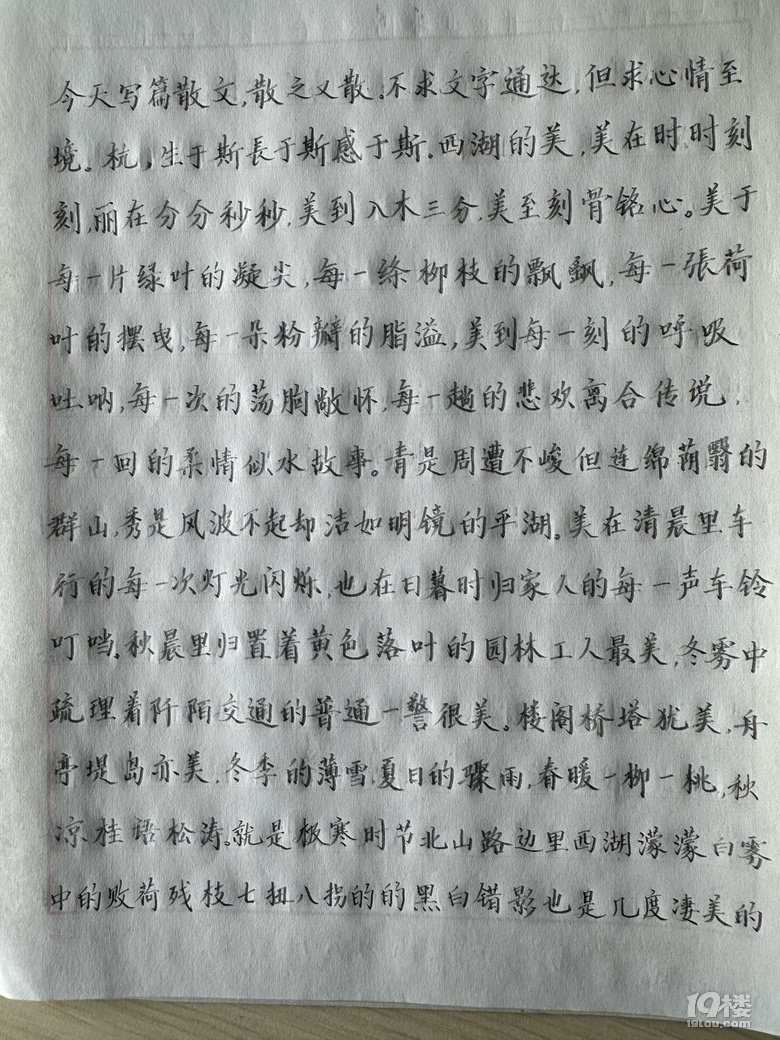 今天写篇散文,散之又散.不求文字通达,但求心情至
境。杭,生于斯長于斯感于斯.西湖的美,美在时时刻
刻,丽在分分秒秒,美到入木三分,美至刻骨铭心。美于
每一片绿叶的凝尖,每一绦柳枝的飘飘,每一張荷
叶的摆曳,每一朵粉瓣的脂溢,美到每一刻的呼吸
吐呐,每一次的荡胸敞怀,每一趟的悲欢离合传说,
每一回的柔情似水故事。青是周遭不峻但连绵荫翳的
群山,秀是风波不起却洁如明镜的平湖.美在清晨里车
行的每一次灯光闪烁,也在日暮时归家人的每一声车铃
叮咚.秋晨里归置着黄色落叶的园林工人最美,冬雾中
疏理着阡陌交通的普通一警很美.楼阁桥塔犹美,舟
亭堤岛亦美.冬季的薄雪,夏日的骤雨,春暖一柳一桃,秋
凉桂语松涛。就是极寒时节北山路边里西湖濛濛白雾
中的败荷残枝七扭八拐的的黑白错影也是几度凄美的
19楼
19lou.com